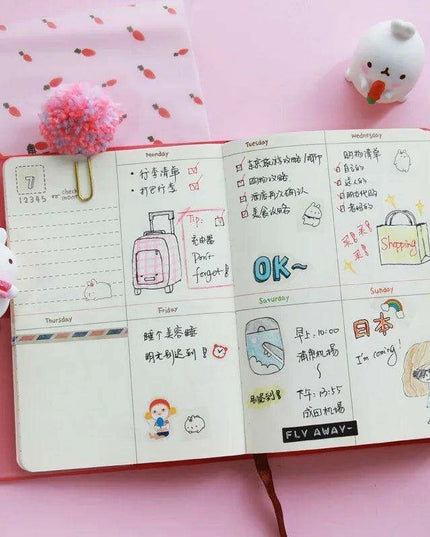 7
12345
check
Monday
• 行李清单
• 打包行李
Tip:
充电器
Don't
forget!
Tuesday
东京旅游攻略/两个
购物攻略
酒店再次确认
美食攻略
OK~
Wednesday
购物清单
自己的
送人的
朋友代购
老妈的
买!买!
买!
Shopping
Thursday
Friday
睡个美容觉
明天别迟到!
Saturday
早上 10:00
浦东机场
~
下午 13:55
成田机场
别迟到!
FLY AWAY~
Sunday
日本
I'm coming!